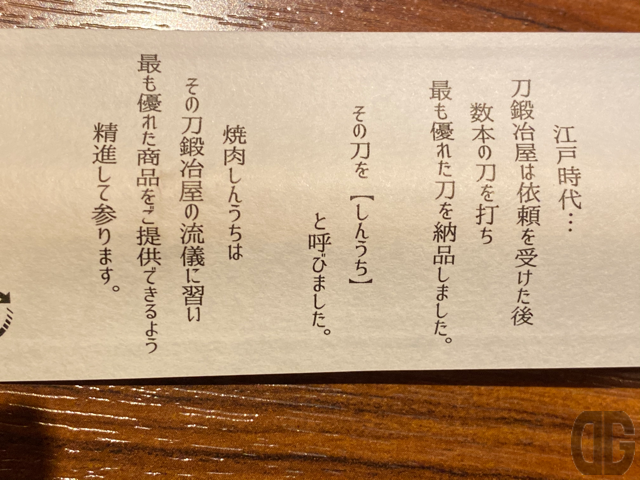 江戸時代…
刀鍛冶屋は依頼を受けた後
数本の刀を打ち
最も優れた刀を納品しました。
その刀を【しんうち】
と呼びました。
焼肉しんうちは
その刀鍛冶屋の流儀に習い
最も優れた商品をご提供できるよう
精進して参ります。
DG